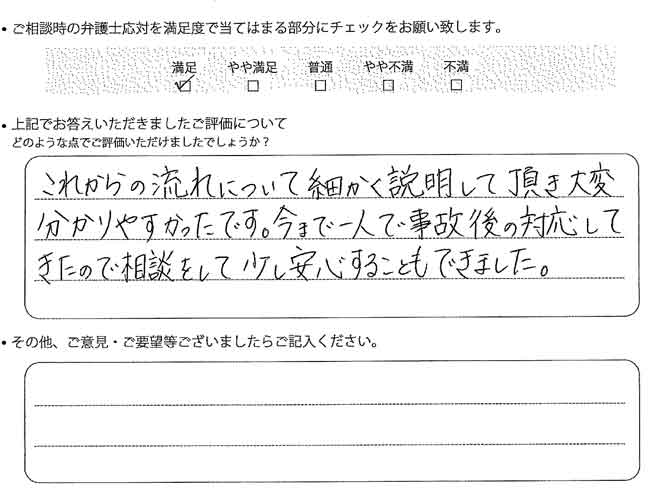 ・ご相談時の弁護士応対を満足度で当てはまる部分にチェックをお願い致します。
満足 やや満足 普通 やや不満 不満
☑ □ □ □ □
・上記でお答えいただきましたご評価について
どのような点でご評価いただけましたでしょうか？
これからの流れについて細かく説明して頂き大変
分かりやすかったです。今まで一人で事故後の対応して
きたので相談をして少し安心することもできました。
・その他、ご意見・ご要望等ございましたらご記入ください。